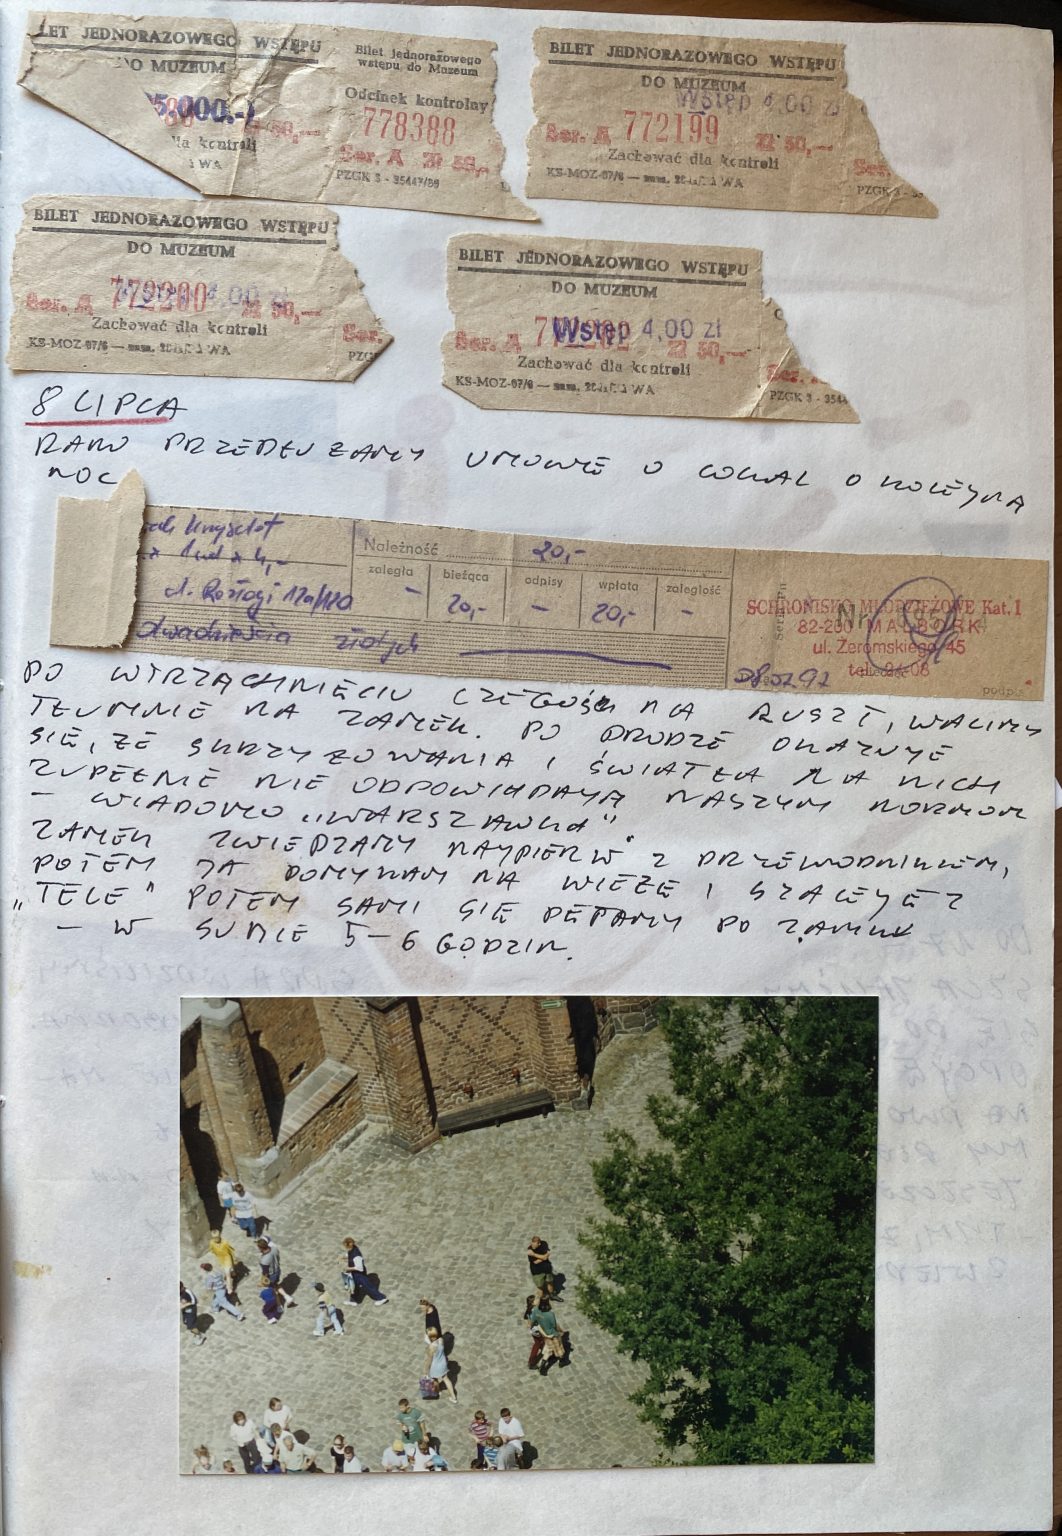 BILET JEDNORAZOWEGO WSTĘPU
DO MUZEUM
5.000.-
Zł 50,—
dla kontroli
WA
Bilet jednorazowego
wstępu do Muzeum
Odcinek kontrolny
778388
Ser. A Zł 50,-
PZGK 3 - 35447/89
BILET JEDNORAZOWEGO WSTĘPU
DO MUZEUM
Wstęp 4,00 zł
Ser. A 772199 Zł 50,—
Zachować dla kontroli
KS-MOZ-07/6
WA
Ser.
PZGK 3 -
BILET JEDNORAZOWEGO WSTĘPU
DO MUZEUM
Wstęp 4,00 zł
Ser. A 772200 Zł 50,—
Zachować dla kontroli
KS-MOZ-07/6
WA
Ser.
PZG
BILET JEDNORAZOWEGO WSTĘPU
DO MUZEUM
Wstęp 4,00 zł
Ser. A Zł 50,—
Zachować dla kontroli
KS-MOZ-07/6
WA
Ser.
PZGK 3 - 354
8 LIPCA
RANO PRZEDŁUŻAMY UMOWĘ O LOKAL O KOLEJNĄ
NOC
Należność 20,-
zaległa bieżąca odpisy wpłata zaległość
- 20,- - 20,- -
ul. Rozłogi
dwadzieścia złotych
SCHRONISKO MŁODZIEŻOWE Kat. 1
82-200 MALBORK
ul. Żeromskiego 45
tel. 24-08
podpis
PO WTRZĄCHNIĘCIU CZEGOŚ NA RUSZT, WALIMY
TŁUMNIE NA ZAMEK. PO DRODZE OKAZUJE
SIĘ, ŻE SKRZYŻOWANIA I ŚWIATŁA NA NICH
ZUPEŁNIE NIE ODPOWIADAJĄ NASZYM NORMOM
- WIADOMO „WARSZAWKA".
ZAMEK ZWIEDZAMY NAJPIERW Z PRZEWODNIKIEM,
POTEM JA POMYKAM NA WIEŻĘ I SZALEJĘ Z
„TELE" POTEM SAMI SIĘ PĘTAMY PO ZAMKU
- W SUMIE 5-6 GODZIN.